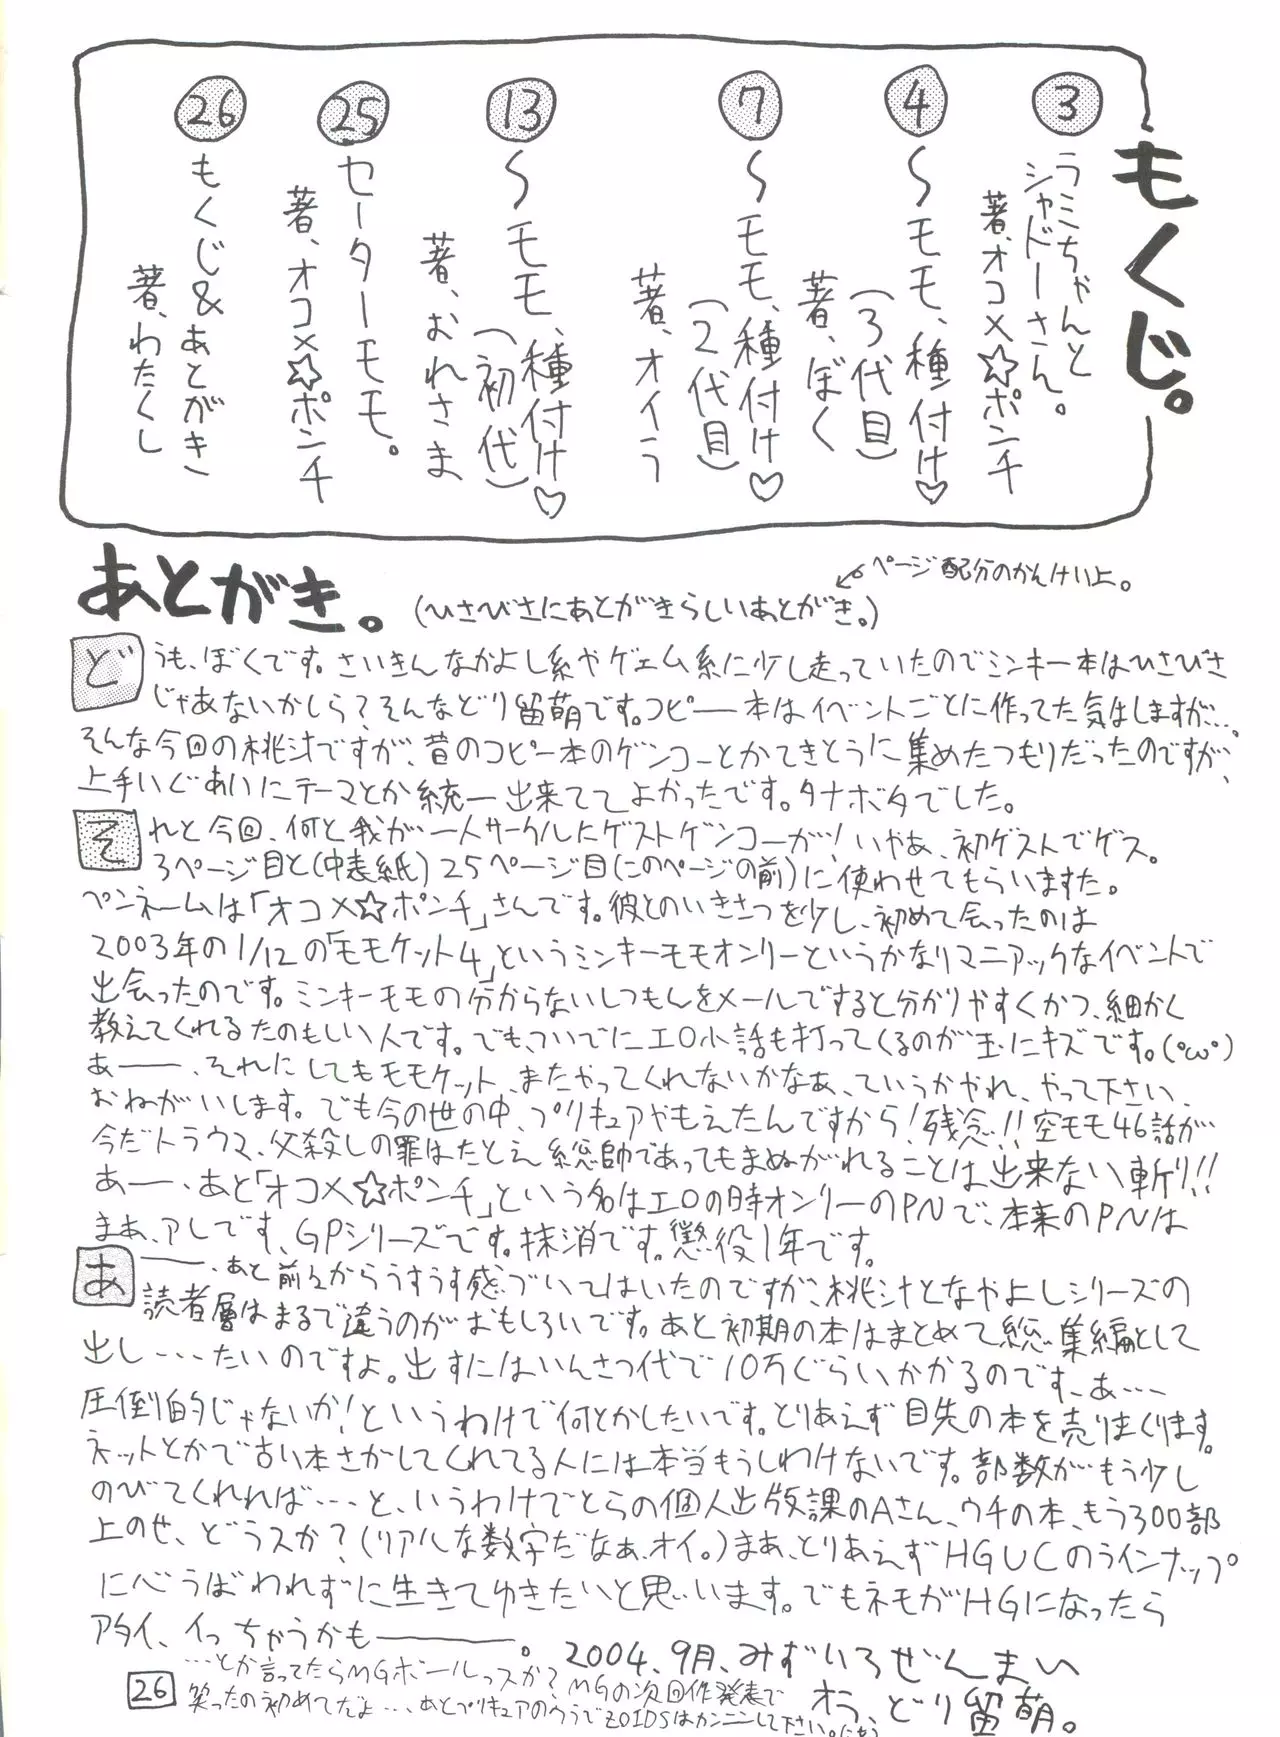 もくじ。
3
ラミちゃんと
シャドーさん。
著、オコメ☆ポンチ
4
〜モモ、種付け♡
(3代目)
著、ぼく
7
〜モモ、種付け♡
(2代目)
著、オイラ
13
〜モモ、種付け♡
(初代)
著、おれさま
25
セーターモモ。
著、オコメ☆ポンチ
26
もくじ&あとがき
著、わたくし
あとがき。
(ひさびさにあとがきらしいあとがき。)
ページ配分のかんけい上。
どうも、ぼくです。さいきんなかよし系やゲェム系に少し走っていたのでミンキー本はひさびさ
じゃあないかしら?そんなどり留萌です。コピー本はイベントごとに作ってた気はしますが…。
そんな今回の桃汁ですが、昔のコピー本のゲンコーとかてきとうに集めたつもりだったのですが、
上手いぐあいにテーマとか統一出来ててよかったです。タナボタでした。
それと今回、何と我が一人サークルにゲストゲンコーが!いやあ、初ゲストでゲス。
3ページ目と(中表紙)25ページ目(このページの前)に使わせてもらいますた。
ペンネームは「オコメ☆ポンチ」さんです。彼とのいきさつを少し、初めて会ったのは
2003年の1/12の「モモケット4」というミンキーモモオンリーというかなりマニアックなイベントで
出会ったのです。ミンキーモモの分からないしつもんをメールですると分かりやすくかつ、細かく
教えてくれるたのもしい人です。でも、ついでにエロ小話も打ってくるのが玉にキズです。(°ω°)
あー、それにしてもモモケット、またやってくれないかなあ、ていうかやれ、やって下さい、
おねがいします。でも今の世の中、プリキュアやもえたんですから!残念!!空モモ46話が
今だトラウマ、父殺しの罪はたとえ総帥であってもまぬがれることは出来ない斬り!!
あー、あと「オコメ☆ポンチ」という名はエロの時オンリーのPNで、本来のPNは
まあ、アレです、GPシリーズです。抹消です。懲役1年です。
あー、あと前々からうすうす感づいてはいたのですが、桃汁となやよしシリーズの
読者層はまるで違うのがおもしろいです。あと初期の本はまとめて総集編として
出し…たいのですよ。出すにはいんさつ代で10万ぐらいかかるのです、あ…
圧倒的じゃないか!というわけで何とかしたいです。とりあえず目先の本を売りまくります。
ネットとかで古い本さがしてくれてる人には本当もうしわけないです。部数がもう少し
のびてくれれば…と、いうわけでとらの個人出版課のAさん、ウチの本、もう300部
上のせ、どうスか?(リアルな数字だなぁ、オイ。)まあ、とりあえずHGUCのラインナップ
に心うばわれずに生きてゆきたいと思います。でもネモがHGになったら
アタイ、イっちゃうかもー。2004、9月、みずいろぜんまい
オラ、どり留萌。
…とか言ってたらMGボールっスか?MGの次回作発表で
笑ったの初めてだよ…、あとプリキュアのウラでZOIDSはカンニンして下さい。
26